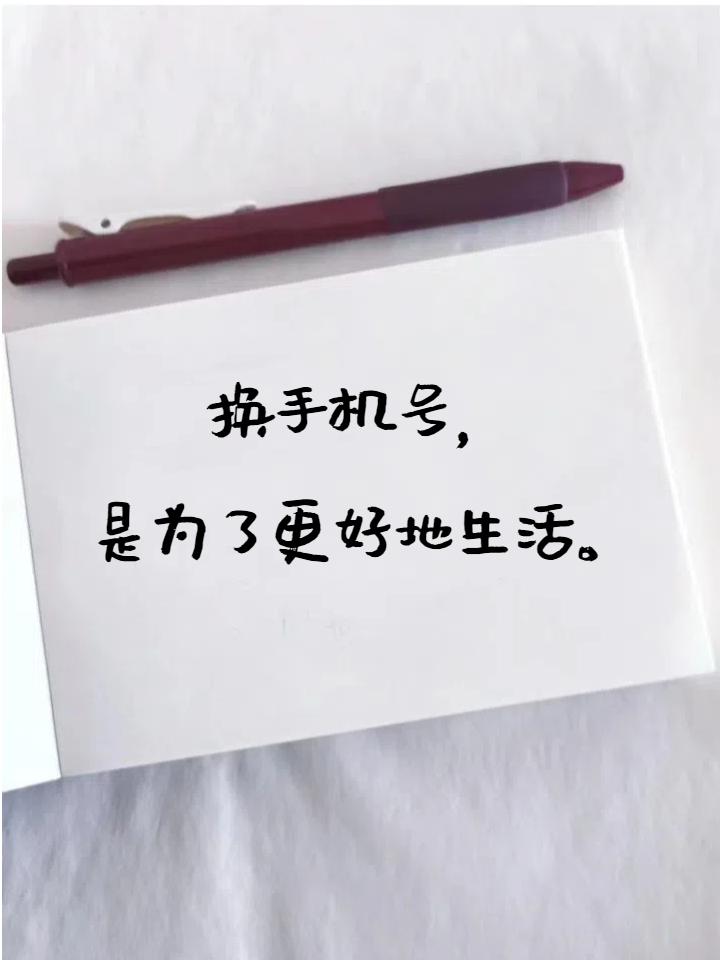 换手机号，
是为了更好地生活。